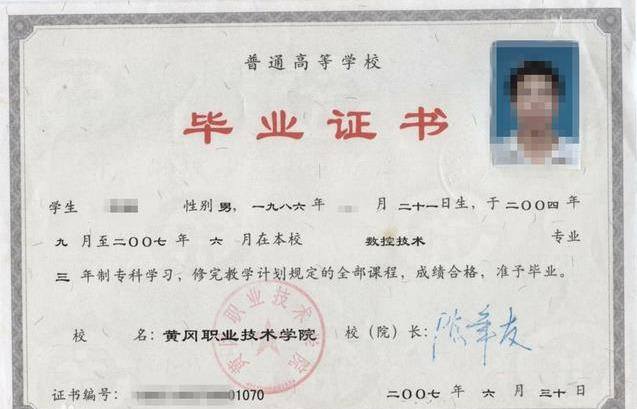 普通高等学校
毕业证书
学生 性别 男，一九八六年 月 二十一日生，于二〇〇四年
九 月至二〇〇七 年 六 月在本校 数控技术 专业
三 年制专科学习，修完教学计划规定的全部课程，成绩合格，准予毕业。
黄冈职业技术学院
校 名：黄冈职业技术学院 校（院）长：
证书编号： 01070 二〇〇七 年 六 月 三十日